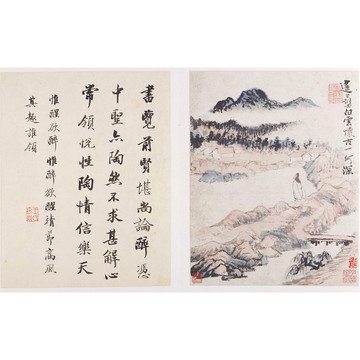 遙々望白雲懷古一何深
書覽前賢堪尚論醉憑
中聖亦陶然不求甚解心
常領悅性陶情信樂天
惟醒欲醉惟醉欲醒靖節高風
其趣誰領